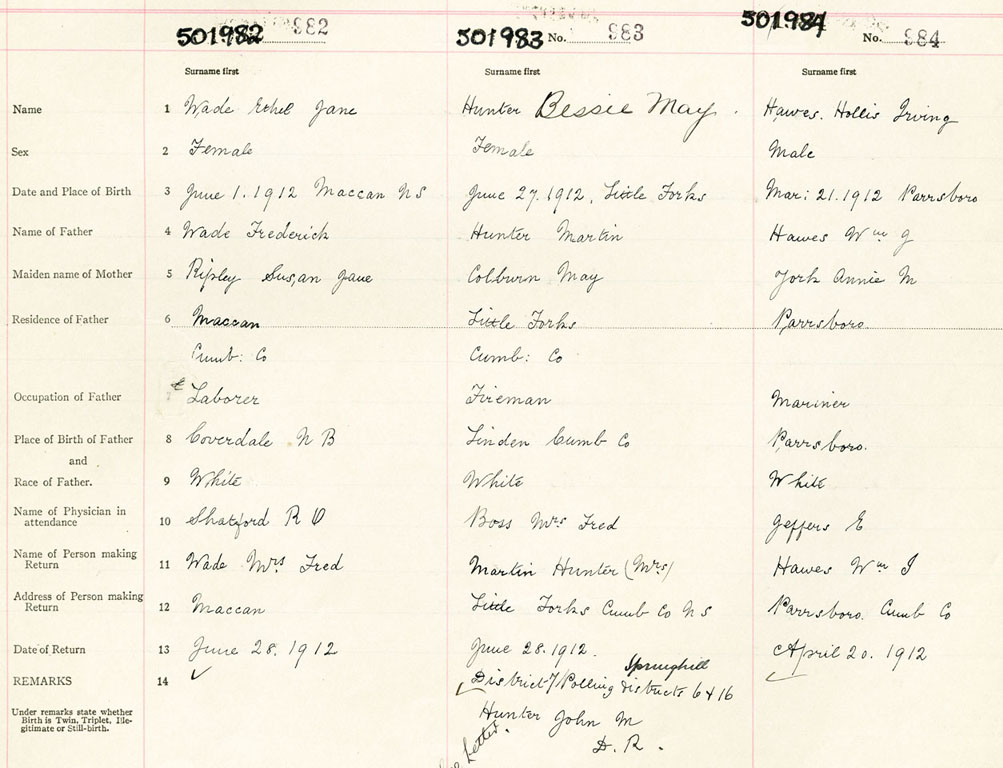 501982 982 501983 No. 983 501984 No. 984
Surname first Surname first Surname first
Name 1 Wade Ethel Jane Hunter Bessie May. Hawes. Hollis Irving
Sex 2 Female Female Male
Date and Place of Birth 3 June 1. 1912 Maccan NS June 27. 1912, Little Forks Mar: 21. 1912 Parrsboro
Name of Father 4 Wade Frederick Hunter Martin Hawes Wm J
Maiden name of Mother 5 Ripley Susan Jane Colburn May York Annie M
Residence of Father 6 Maccan Little Forks Parrsboro.
Cumb: Co Cumb: Co
Occupation of Father Laborer Fireman Mariner
Place of Birth of Father 8 Coverdale N B Linden Cumb Co Parrsboro.
and
Race of Father. 9 White White White
Name of Physician in
attendance 10 Shatford R O Boss Mrs Fred Jeffers E
Name of Person making
Return 11 Wade Mrs Fred Martin Hunter (Mrs) Hawes Wm J
Address of Person making
Return 12 Maccan Little Forks Cumb Co N S Parrsboro. Cumb Co
Date of Return 13 June 28. 1912 June 28. 1912. April 20. 1912
Springhill
REMARKS 14 District 7 Polling districts 6 & 16
Under remarks state whether
Birth is Twin, Triplet, Ille-
gitimate or Still-birth.
Hunter John M
D. R.
Letter.